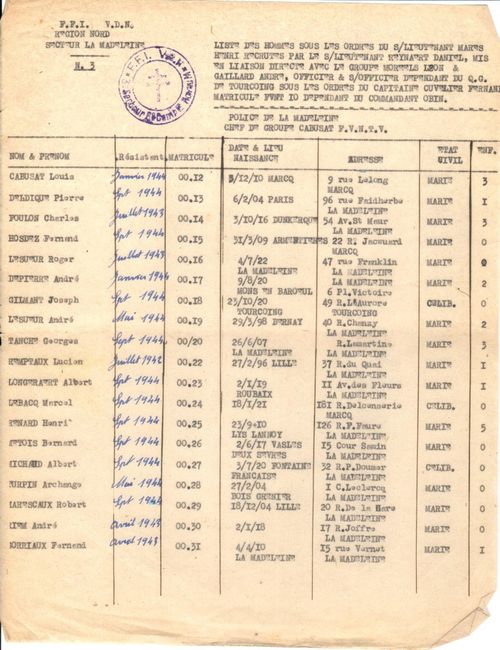 F.F.I. V.D.N.
REGION NORD
SECTEUR LA MADELEINE
N. 3
LISTE DES HOMMES SOUS LES ORDRES DU S/LIEUTENANT MARES
HENRI RECRUTES PAR LE S/LIEUTENANT REYNAERT DANIEL, MIS
EN LIAISON DIRECTE AVEC LE GROUPE MOREELS LEON &
GAILLARD ANDRE, OFFICIER & S/OFFICIER DEPENDANT DU Q.G.
DE TOURCOING SOUS LES ORDRES DU CAPITAINE CUVELIER FERNAN
MATRICULE FVNT IO DEPENDANT DU COMMANDANT OBIN.
POLICE DE LA MADELEINE
CHEF DE GROUPE CABUSAT F.V.N.T.V.
NOM & PRENOM Résistant MATRICULE DATE & LIEU NAISSANCE ADRESSE ETAT CIVIL ENF.
CABUSAT Louis Janvier 1944 00.I2 3/I2/IO MARCQ 9 rue Lelong MARIE 3
MARCQ
DELDIQUE Pierre Spt 1944 00.I3 6/2/04 PARIS 96 rue Faidherbe MARIE I
LA MADELEINE
FOULON Charles Juillet 1943 00.I4 3/IO/I6 DUNKERQUE 54 Av.St Maur MARIE 3
LA MADELEINE
HOSDEZ Fernand Spt 1944 00.I5 3I/3/09 ARMENTIERES 22 R. Jacquard MARIE 0
MARCQ
LESUEUR Roger Juillet 1943 00.I6 4/7/22 47 rue Franklin MARIE 0
LA MADELEINE LA MADELEINE
DEPIERRE André Janvier 1944 00.I7 9/8/20 LA MADELEINE MARIE 2
MONS EN BAROEUL 6 Pl.Victoire
GILMANT Joseph Spt 1944 00.I8 23/IO/20 49 R.L'Aurore CELIB. 0
TOURCOING TOURCOING
LESUEUR André Mai 1944 00.I9 29/3/98 BERNAY 40 R.Chanzy MARIE 2
LA MADELEINE
TANCHE Georges Sept 1944 00/20 26/6/07 R.Lamartine MARIE 3
LA MADELEINE LA MADELEINE
REMPTAUX Lucien 00.22 27/2/96 LILLE 37 R.du Quai MARIE I
LA MADELEINE
LONGERAERT Albert Spt 1944 00.23 2/I/I9 II Av.des Fleurs MARIE I
ROUBAIX LA MADELEINE
LEBACQ Marcel Spt 1944 00.24 I8/I/2I I8I R.Delcenserie CELIB. 0
MARCQ
RENARD Henri Spt 1944 00.25 23/9/IO I26 R.F.Faure MARIE 5
LYS LANNOY LA MADELEINE
Bernard Spt 1944 00.26 2/6/I7 VASLES I5 Cour Samin MARIE 0
DEUX SEVRES LA MADELEINE
MICHAUD Albert Spt 1944 00.27 3/7/20 FONTAINE 32 R.P.Doumer CELIB. 0
FRANCAISE LA MADELEINE
TURPIN Archange Mai 1944 00.28 27/2/04 I C.Leclercq MARIE 0
BOIS GRENIER LA MADELEINE
MARESCAUX Robert Spt 1944 00.29 I8/I2/04 LILLE 20 R.De la Hare MARIE 0
LA MADELEINE
André avril 1943 00.30 2/I/I8 I7 R.Joffre MARIE 0
LA MADELEINE
Fernand avril 1943 00.3I 4/4/IO I5 rue Vernet MARIE I
LA MADELEINE LA MADELEINE